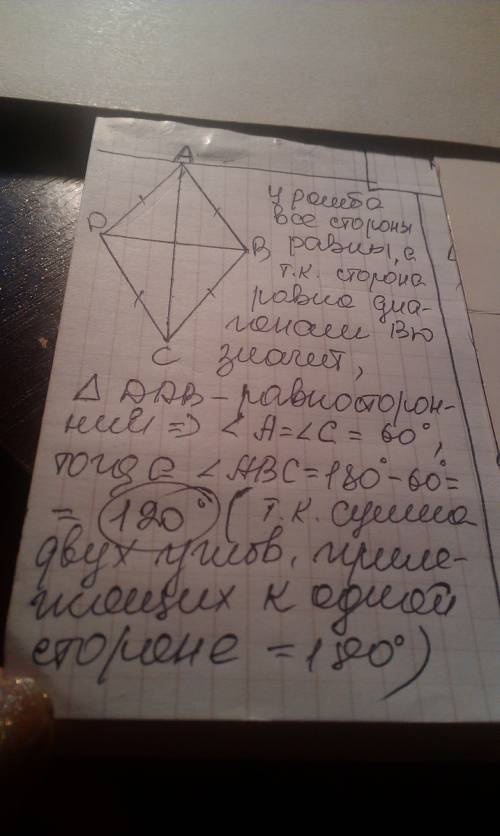 A
D
B
C
У ромба
все стороны
равны, а
т.к. сторона
равна диа-
гонали BD
значит,
Δ DAB – равносторон-
ний => ∠A=∠C = 60°,
тогда ∠ABC=180°-60°=
= 120° (т.к. сумма
двух углов, приле-
жащих к одной
стороне =180°)